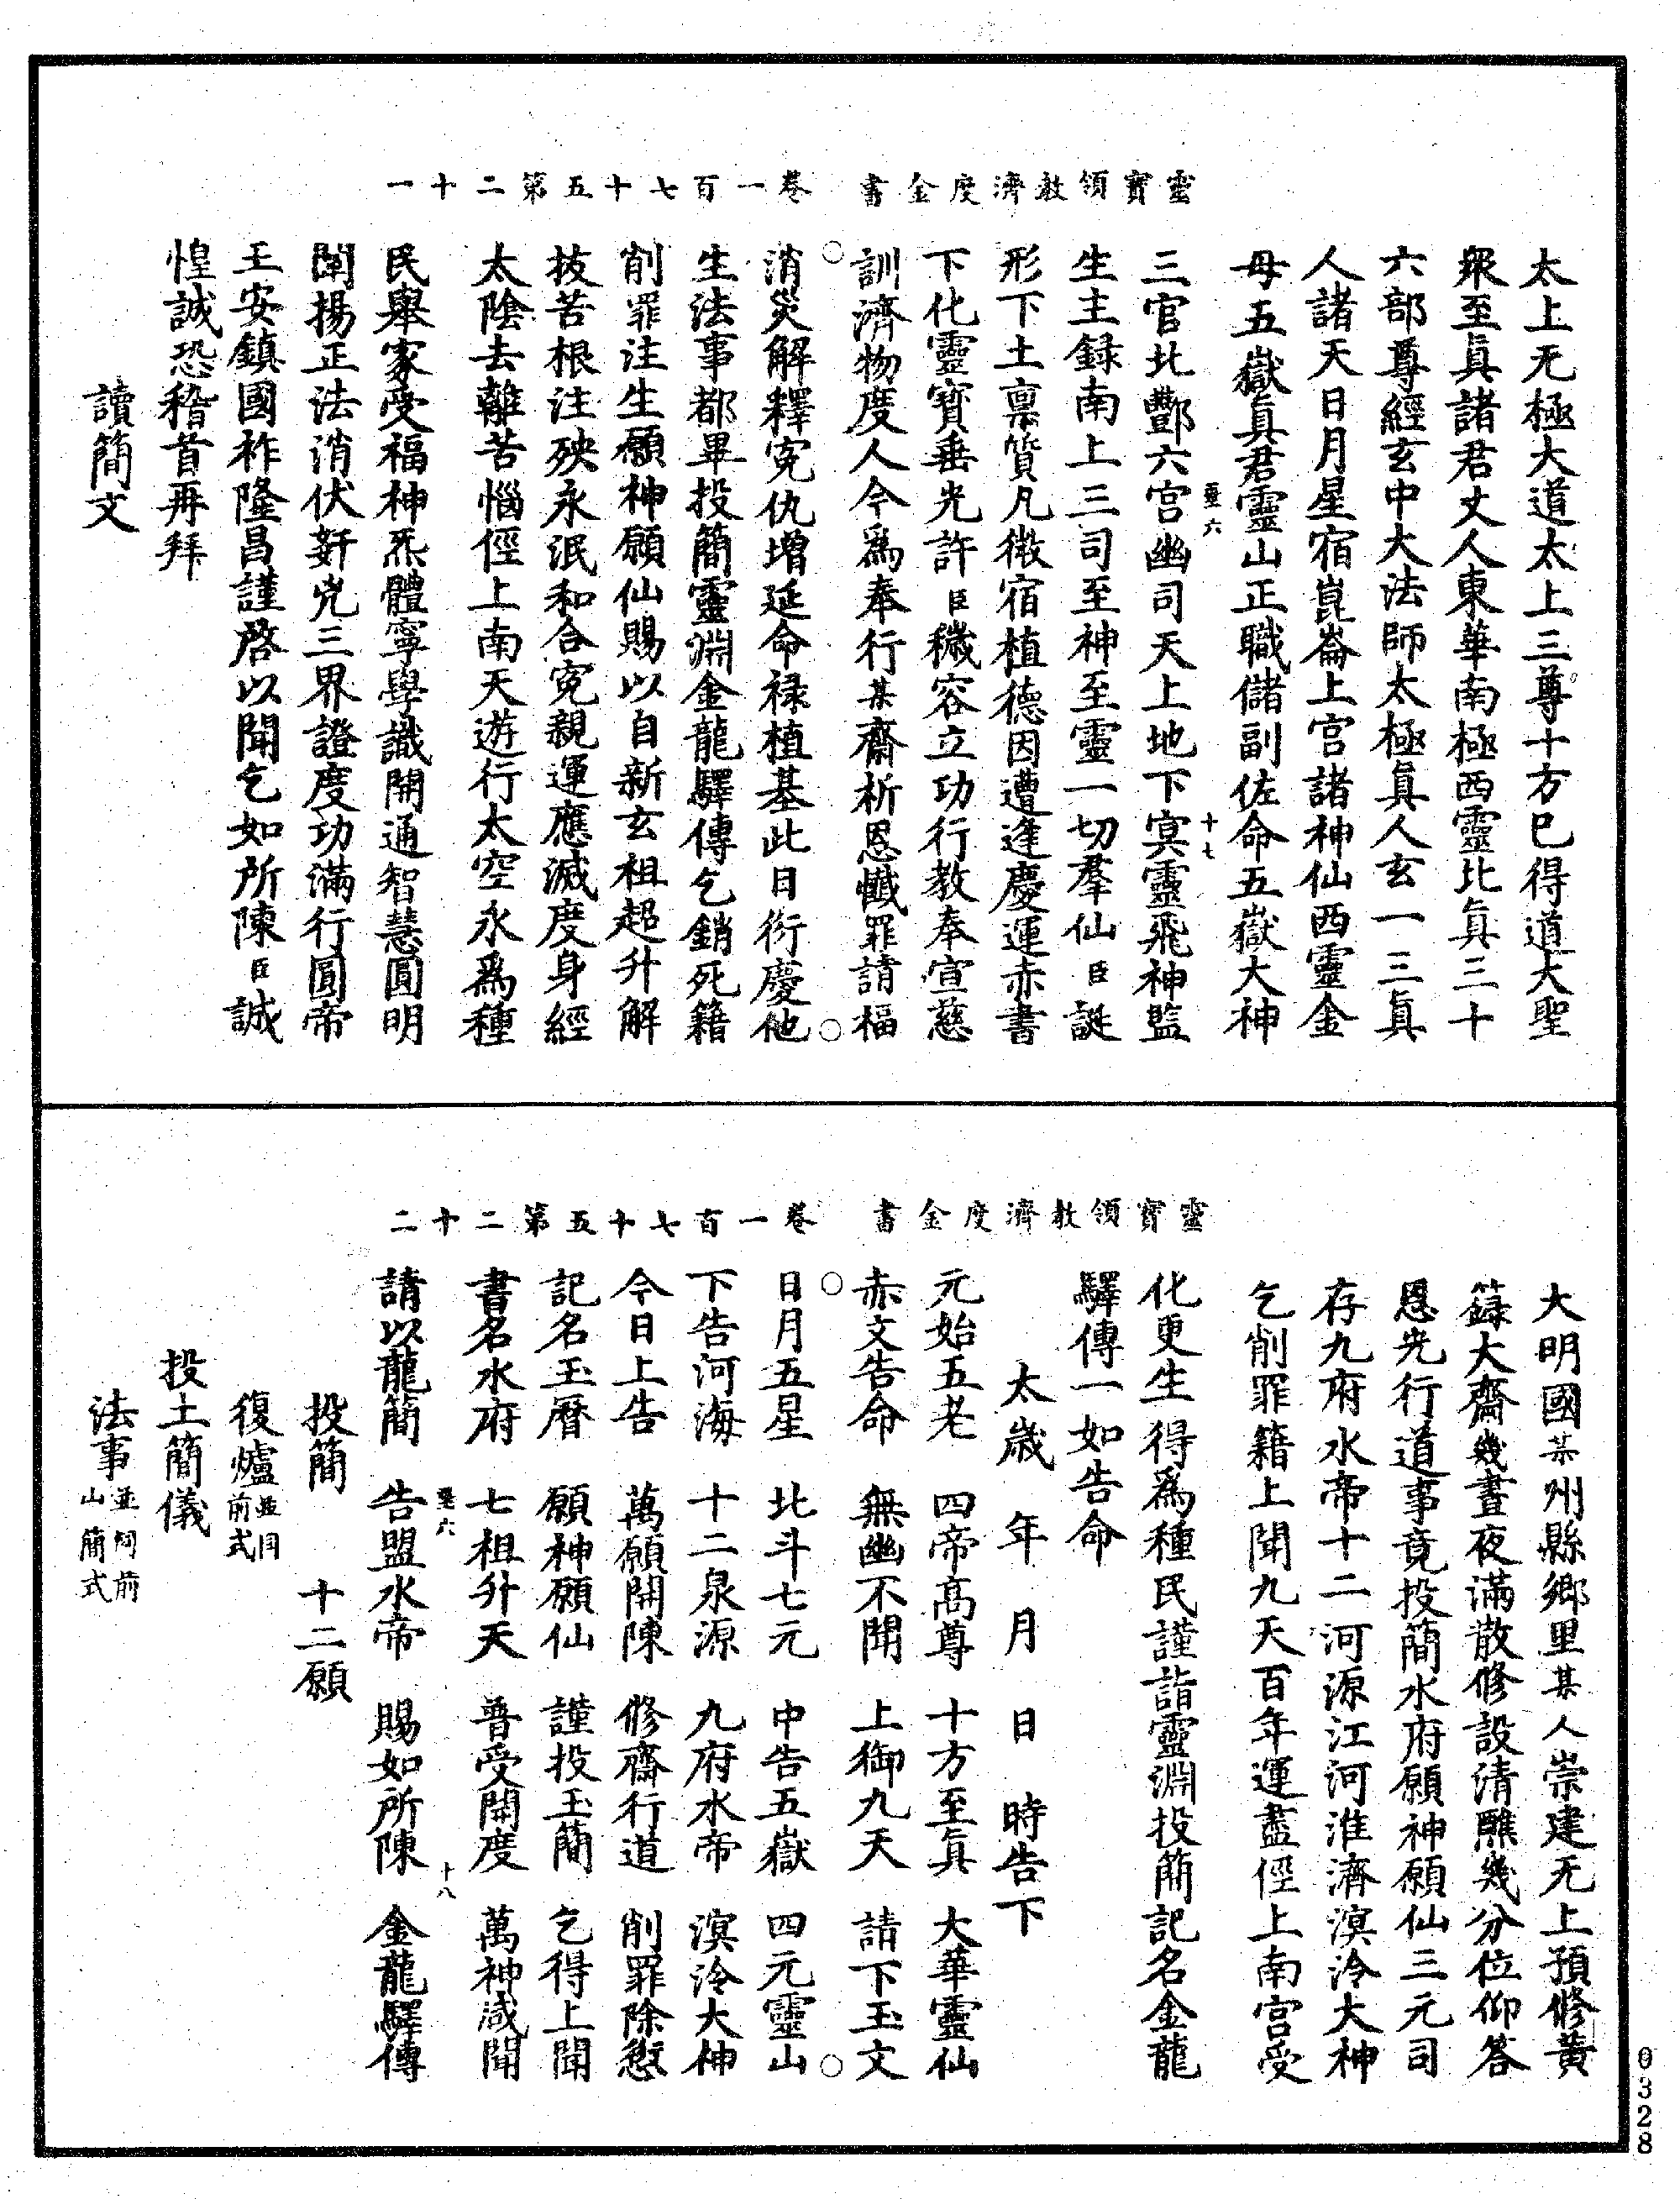 靈寶領教濟度金書　卷一百七十五第二十一
太上无極大道太上三尊十方巳得道大聖
衆至眞諸君丈人東華南極西靈北眞三十
六部尊經玄中大法師太極眞人玄一三眞
人諸天日月星宿崑崙上宮諸神仙西靈金
母五嶽眞君靈山正職儲副佐命五嶽大神
六　十七
三官北酆六宮幽司天上地下冥靈飛神監
生主録南上三司至神至靈一切羣仙臣誕
形下土禀質凡微宿植德因遭逢慶運赤書
下化靈寶垂光許臣穢容立功行教奉宣慈
訓濟物度人今爲奉行某齋祈恩懺罪請福
消災解釋寃仇増延命禄植基此日衍慶他
生法事都畢投簡靈淵金龍驛傳乞銷死籍
削罪注生願神願仙賜以自新玄祖超升解
拔苦根注殃永泯和合寃親運應滅度身經
太陰去離苦惱徑上南天遊行太空永爲種
民舉家受福神炁體寧學識開通智慧圓明
闡揚正法消伏姧兇三界證度功滿行圓帝
王安鎮國祚隆昌謹啓以聞乞如所陳臣誠
惶誠恐稽首再拜
讀簡文
靈寶領教濟度金書　卷一百七十五第二十二
大明國某州縣鄉里某人崇建无上預修黃
籙大齋幾晝夜滿散修設清醮幾分位仰答
恩光行道事竟投簡水府願神願仙三元司
存九府水帝十二河源江河淮濟溟泠大神
乞削罪籍上聞九天百年運盡徑上南宮受
化更生得爲種民謹詣靈淵投簡記名金龍
驛傳一如告命
太歲　年　月　日　時告下
元始五老　四帝高尊　十方至眞　大華靈仙
赤文告命　無幽不開　上御九天　請下玉文
日月五星　北斗七元　中告五嶽　四元靈山
下告河海　十二泉源　九府水帝　溟泠大神
今日上告　萬願開陳　修齋行道　削罪除愆
記名玉曆　願神願仙　謹投玉簡　乞得上聞
書名水府　七祖升天　普受開度　萬神咸聞
六　十八
請以龍簡　告盟水帝　賜如所陳　金龍驛傳
投簡　十二願
復爐並同前式
投土簡儀
法事並同前山簡式
0328